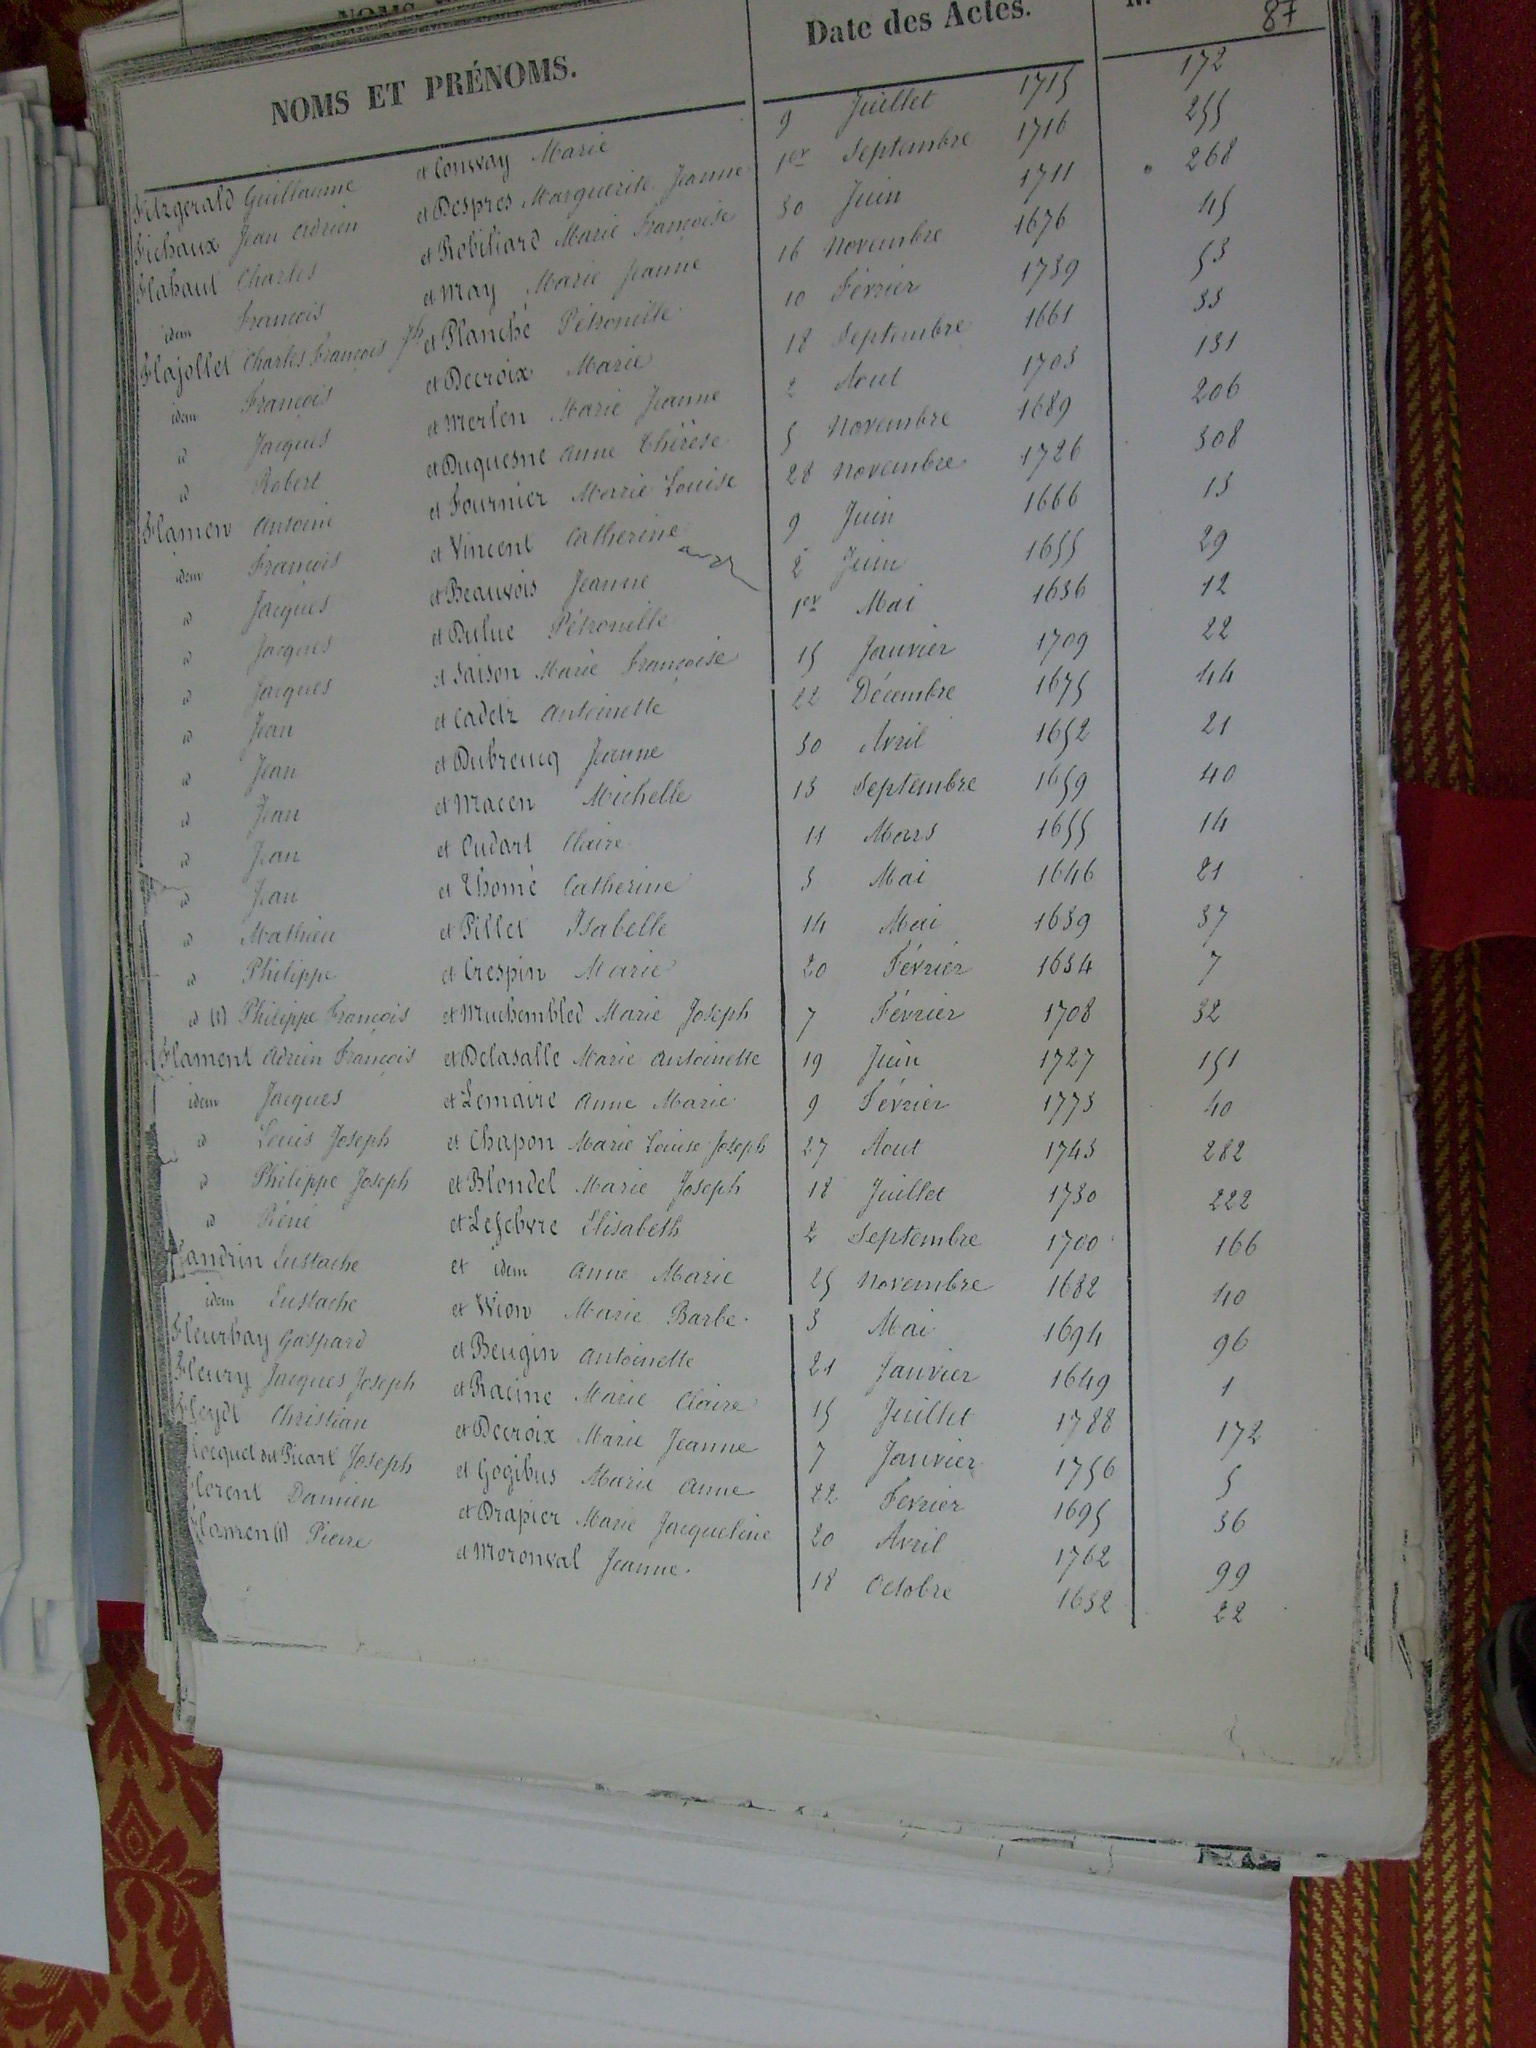 87
NOMS ET PRÉNOMS. Date des Actes.
Fitzgerald Guillaume et Conway Marie 9 Juillet 1715 172
Fichaux Jean Adrien et Despres Marguerite Jeanne 1er Septembre 1716 255
Flahaut Charles et Robiliard Marie Françoise 30 Juin 1711 268
idem François et May Marie Jeanne 16 Novembre 1676 45
Flajollet Charles François Jh et Planché Pétronille 10 Février 1739 53
idem François et Decroix Marie 18 Septembre 1661 33
d Jacques et Merlen Marie Jeanne 2 Aout 1703 131
d Robert et Duquesne Anne Thérèse 5 Novembre 1689 206
Flamen Antoine et Fournier Marie Louise 28 Novembre 1726 308
idem François et Vincent Catherine 9 Juin 1666 13
d Jacques et Beauvois Jeanne 2 Juin 1655 29
d Jacques et Duluc Pétronille 1er Mai 1636 12
d Jacques et Saison Marie Françoise 15 Janvier 1709 22
d Jean et Cadetz Antoinette 22 Décembre 1675 44
d Jean et Dubreucq Jeanne 30 Avril 1652 21
d Jean et Macen Michelle 13 Septembre 1659 40
d Jean et Cudart Claire 11 Mars 1655 14
d Jean et Thomé Catherine 3 Mai 1646 21
d Mathieu et Pillet Isabelle 14 Mai 1639 37
d Philippe et Crespin Marie 20 Février 1634 7
d (1) Philippe François et Muchembled Marie Joseph 7 Février 1708 32
Flament Adrien François et Delasalle Marie Antoinette 19 Juin 1727 151
idem Jacques et Lemaire Anne Marie 9 Février 1773 40
d Louis Joseph et Chapon Marie Louise Joseph 27 Aout 1743 282
d Philippe Joseph et Blondel Marie Joseph 18 Juillet 1730 222
d René et Lefebvre Elisabeth 2 Septembre 1700 166
Flandrin Eustache et idem Anne Marie 25 Novembre 1682 40
idem Eustache et Wion Marie Barbe 3 Mai 1694 96
Fleurbay Gaspard et Beugin Antoinette 21 Janvier 1649 1
Fleury Jacques Joseph et Racine Marie Claire 15 Juillet 1788 172
Fleydt Christian et Decroix Marie Jeanne 7 Janvier 1756 5
Flocquet dit Picart Joseph et Gogibus Marie Anne 22 Fevrier 1695 36
Florent Damien et Drapier Marie Jacqueline 20 Avril 1762 99
Flamen (1) Pierre et Moronval Jeanne 18 Octobre 1632 22